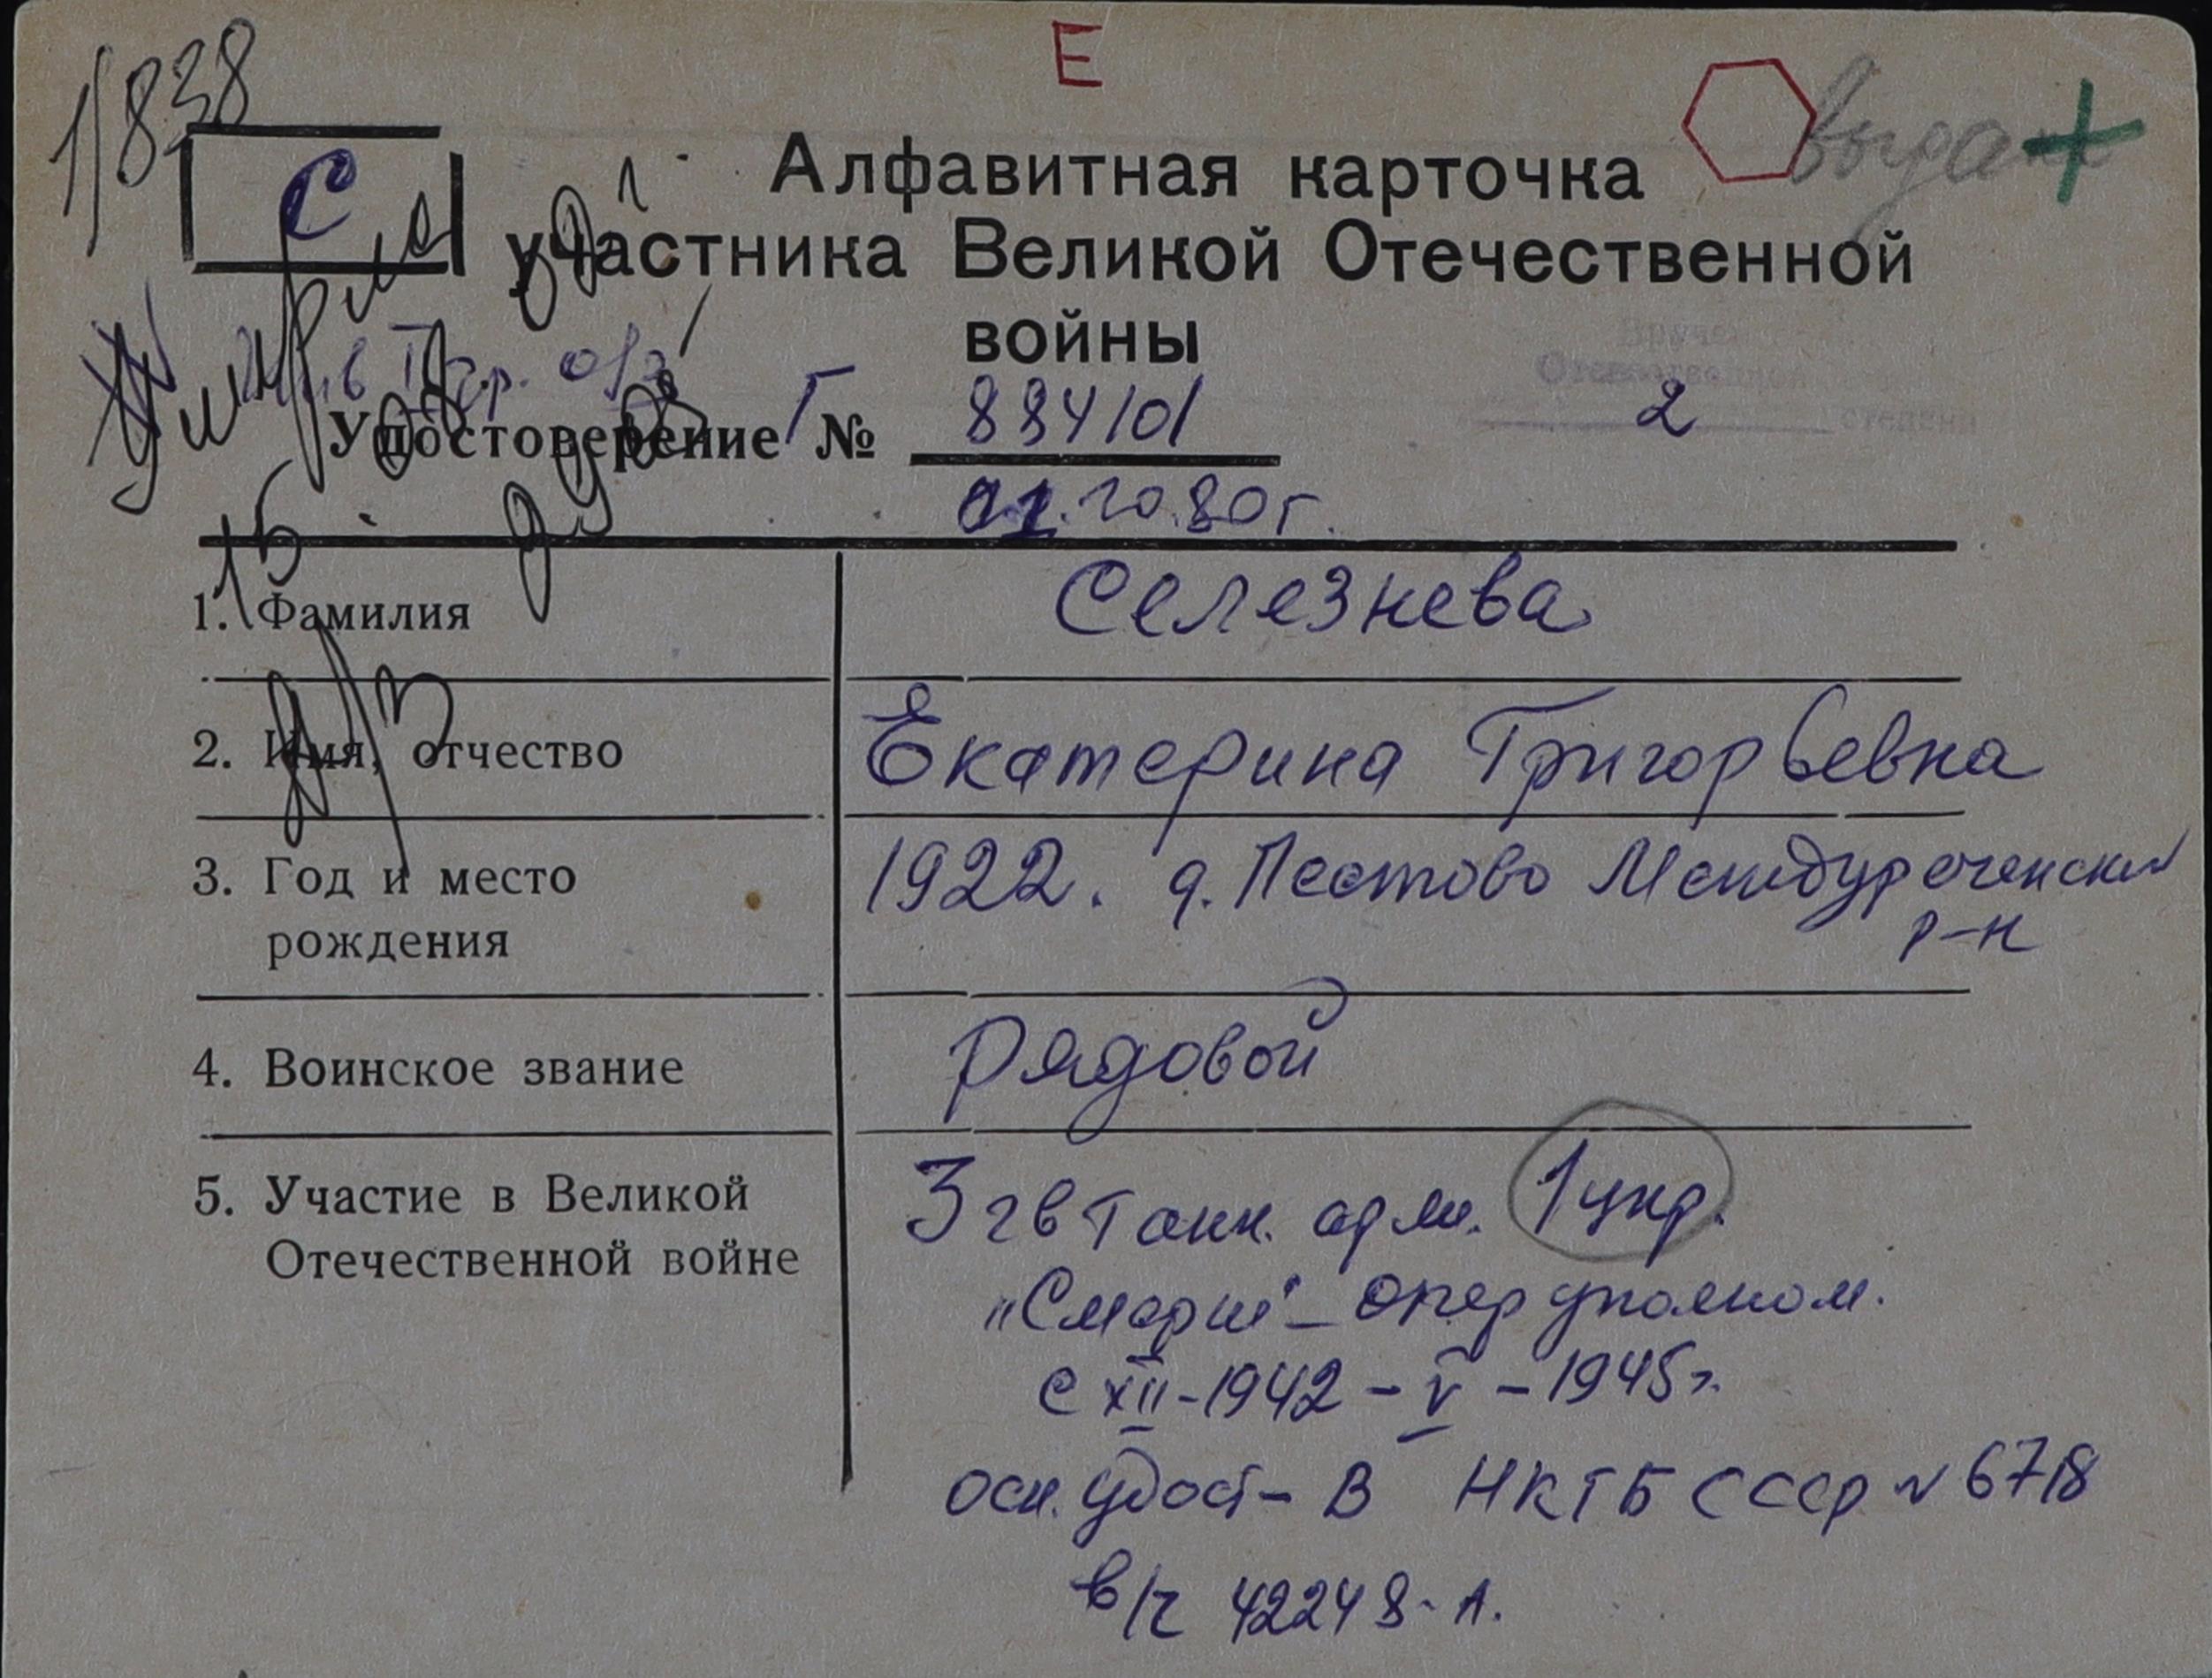 Е
1/838
С
выдан
Алфавитная карточка
участника Великой Отечественной
войны
Умерла
Вручен
Отечественной
2 степени
Удостоверение Г № 884101
01.10.80г.
1. Фамилия Селезнева
2. Имя, отчество Екатерина Григорьевна
3. Год и место рождения 1922. д. Пестово Междуреченский
р-н
4. Воинское звание рядовой
5. Участие в Великой Отечественной войне 3 гв танк. арм. 1 укр.
"Смерш" – опер уполном.
с XII-1942 – V – 1945г.
осн. удост – В НКГБ СССР № 6718
в/ч 42248-А.